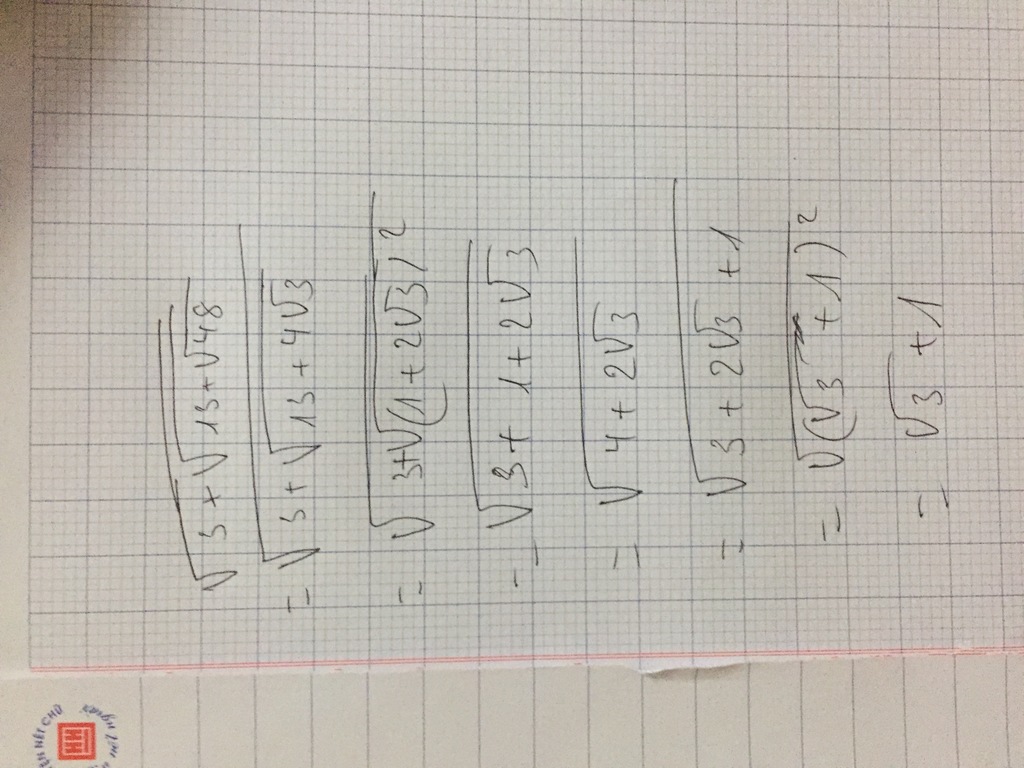 √(3+√(13+√48))
= √(3+√(13+4√3))
= √(3+√((1+2√3)²))
= √(3+1+2√3)
= √(4+2√3)
= √(3+2√3+1)
= √((√3+1)²)
= √3+1
HH